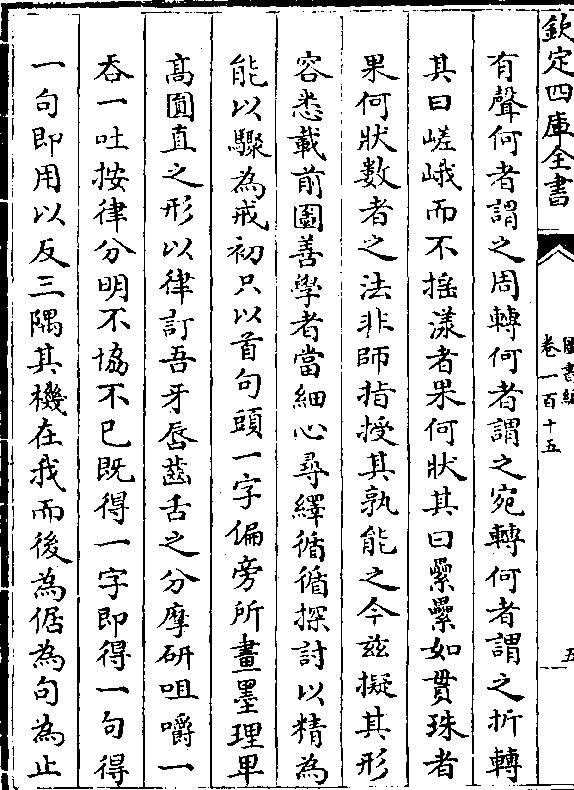 欽定四庫全書
圖書編
卷一百十五
五
有聲何者謂之周轉何者謂之宛轉何者謂之折轉
其曰嵯峨而不摇漾者果何狀其曰纍纍如貫珠者
果何狀數者之法非師指授其孰能之今兹擬其形
容悉載前圖善學者當細心尋繹循循探討以精為
能以驟為戒初只以首句頭一字偏旁所畫墨理單
高圓直之形以律訂吾牙唇齒舌之分摩研咀嚼一
吞一吐按律分明不協不已既得一字即得一句得
一句即用以反三隅其機在我而後為倨為句為止